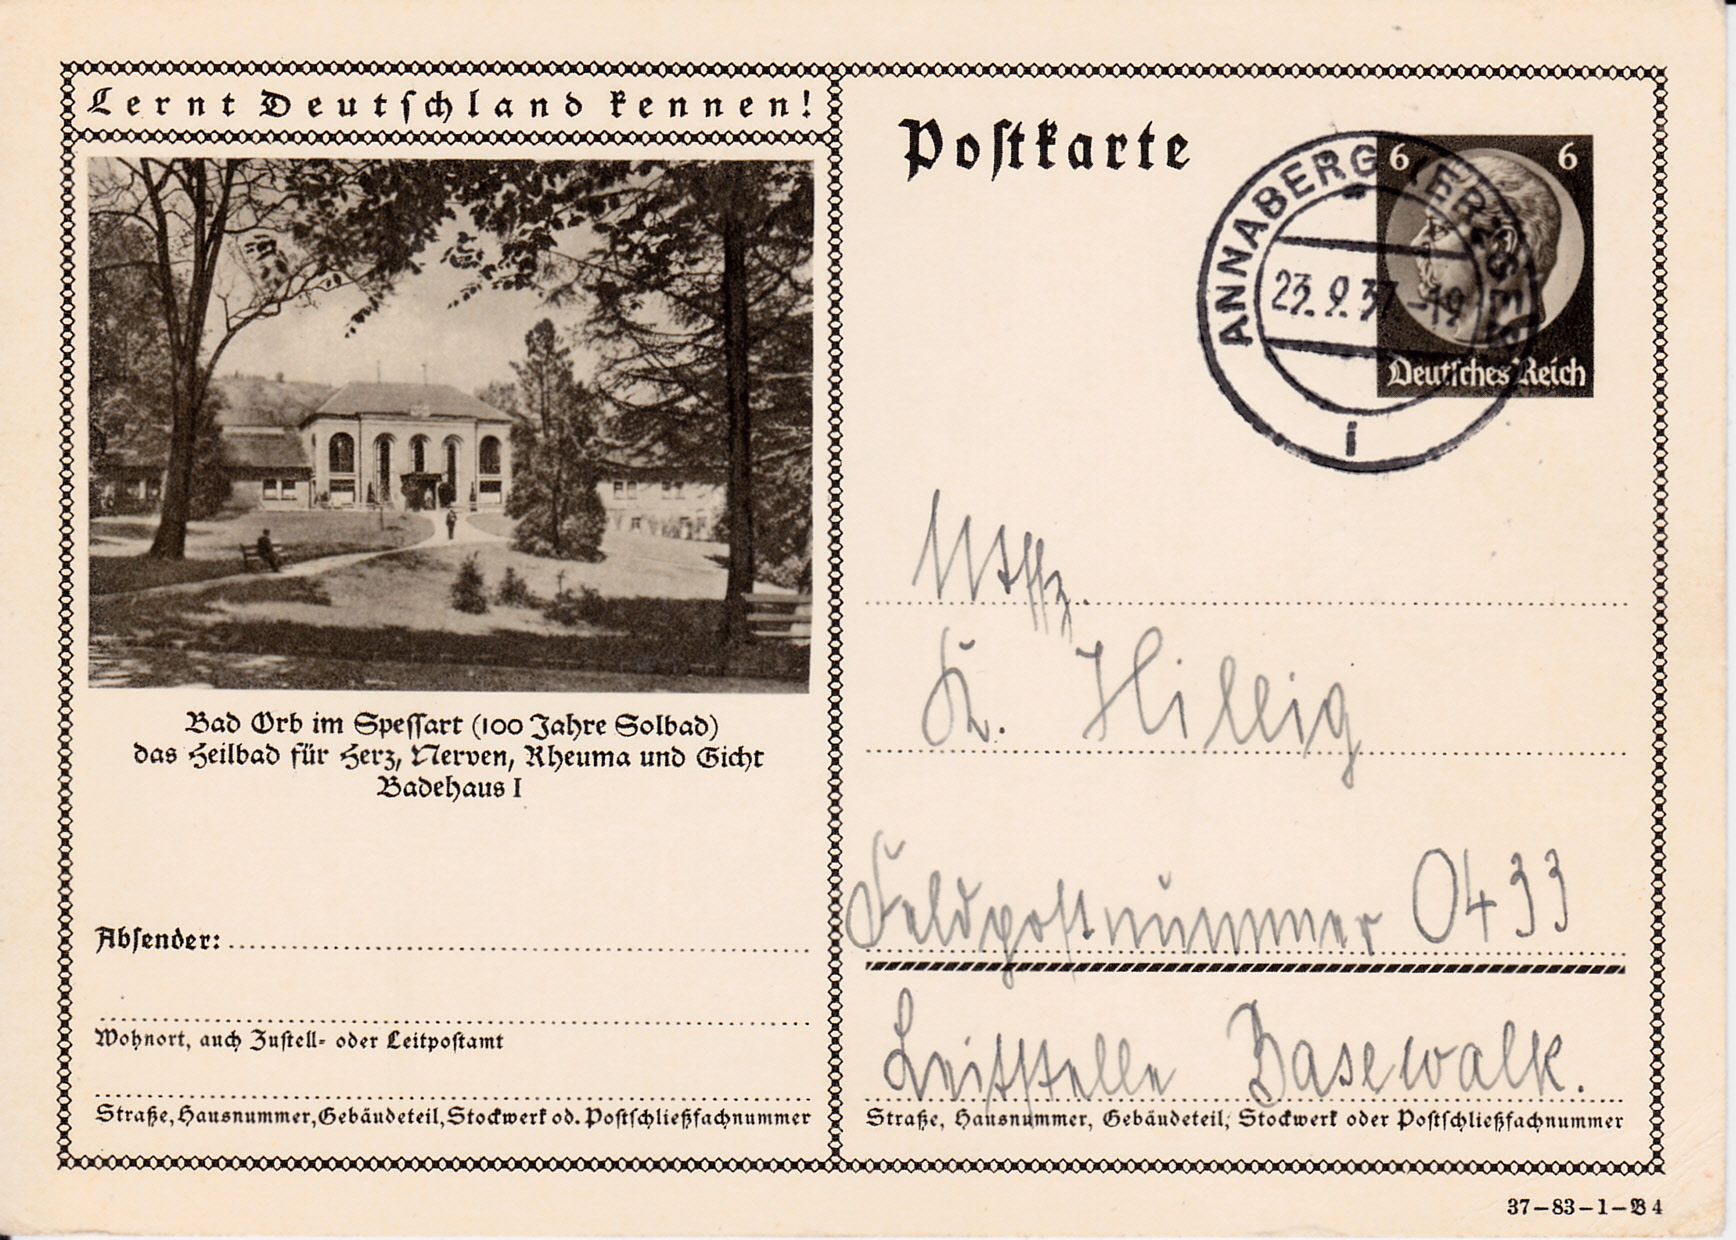 Lernt Deutschland kennen!
Bad Orb im Spessart (100 Jahre Solbad)
das Heilbad für Herz, Nerven, Rheuma und Gicht
Badehaus I
Absender:
Wohnort, auch Zustell- oder Leitpostamt
Straße, Hausnummer, Gebäudeteil, Stockwerk od. Postschließfachnummer
Postkarte
6 6
Deutsches Reich
ANNABERG (ERZGEB)
23.9.37 -19
i
Uffz.
K. Hillig
Feldpostnummer 0433
Leitstelle Pasewalk.
Straße, Hausnummer, Gebäudeteil, Stockwerk oder Postschließfachnummer
37-83-1-B4